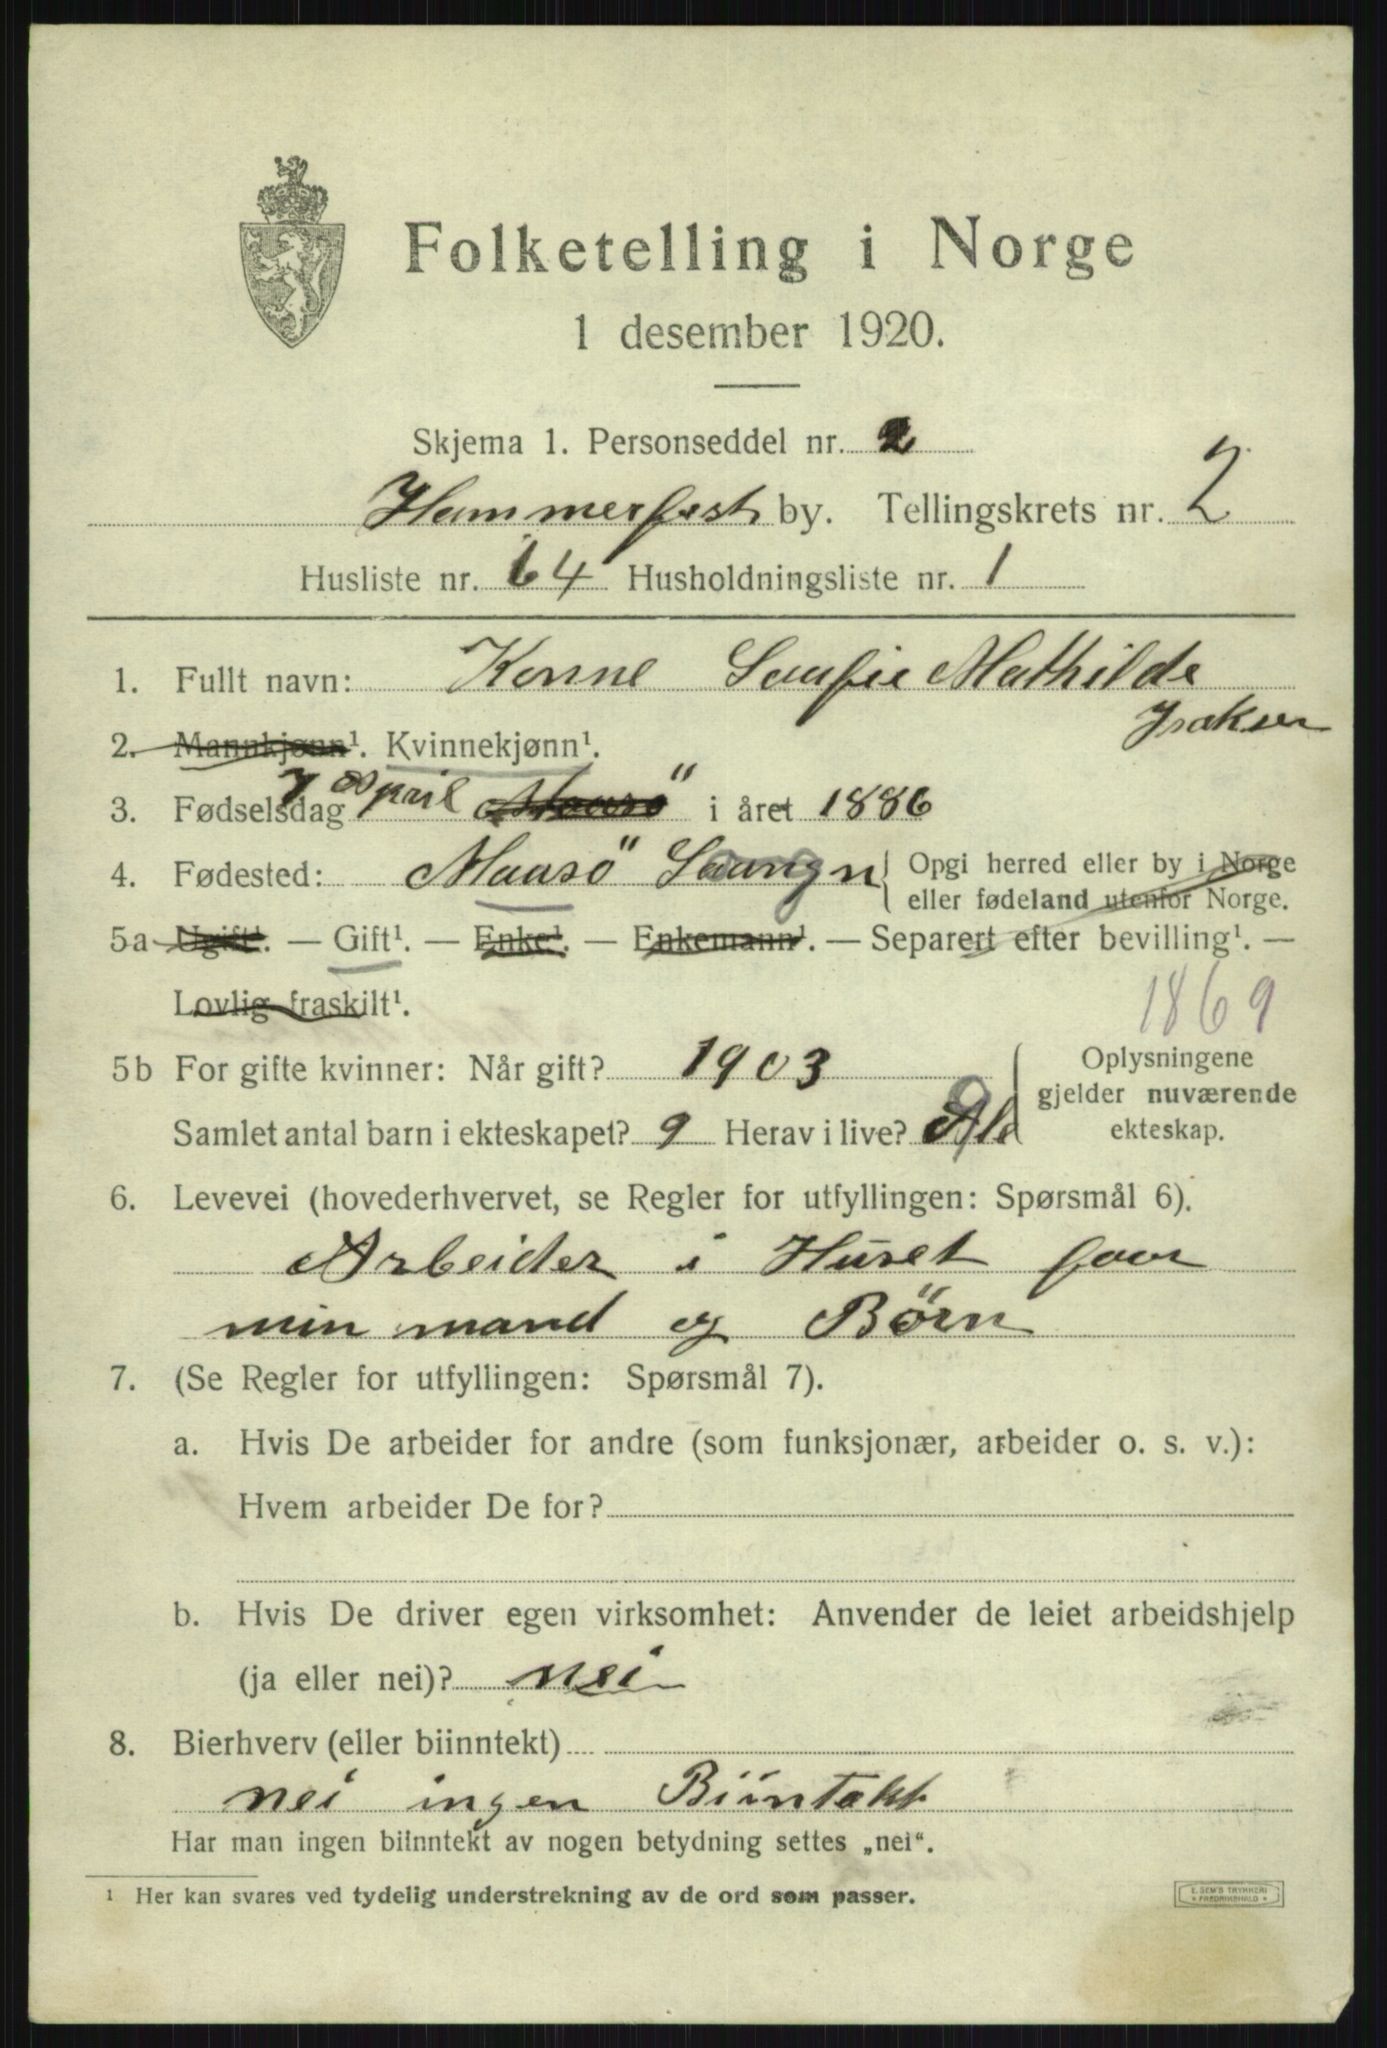 Folketelling i Norge
1 desember 1920.
Skjema 1. Personseddel nr. 2
Hammerfest by. Tellingskrets nr. 2
Husliste nr. 64 Husholdningsliste nr. 1
1. Fullt navn: Konne Soufie Mathilde
Isaksen
2. Mannkjønn¹. Kvinnekjønn¹.
3. Fødselsdag 7 April Maasö i året 1886
4. Fødested: Maasö Sougn { Opgi herred eller by i Norge
eller fødeland utenfor Norge.
5a Ugift¹. — Gift¹. — Enke¹. — Enkemann¹. — Separert efter bevilling¹. —
Lovlig fraskilt¹.
1869
5b For gifte kvinner: Når gift? 1903
Samlet antal barn i ekteskapet? 9 Herav i live? 9 Ale
Oplysningene
gjelder nuværende
ekteskap.
6. Levevei (hovederhvervet, se Regler for utfyllingen: Spørsmål 6).
Arbeider i Huset foor
min mand og Börn
7. (Se Regler for utfyllingen: Spørsmål 7).
a. Hvis De arbeider for andre (som funksjonær, arbeider o. s. v.):
Hvem arbeider De for?
b. Hvis De driver egen virksomhet: Anvender de leiet arbeidshjelp
(ja eller nei)? nei
8. Bierhverv (eller biinntekt)
nei ingen Biintekt
Har man ingen biinntekt av nogen betydning settes „nei“.
¹ Her kan svares ved tydelig understrekning av de ord som passer.
E. SEM'S TRYKKERI
FREDRIKSHALD